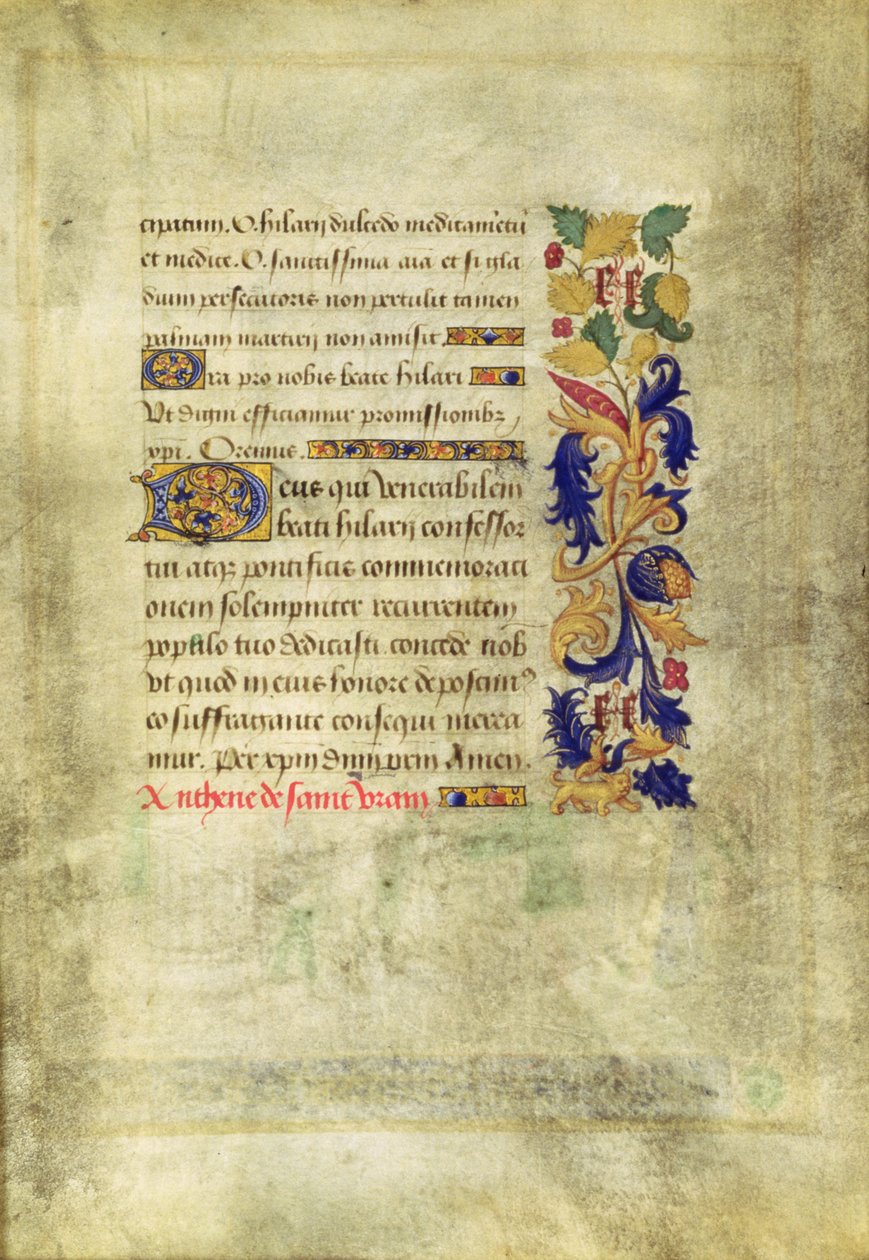 cipatum. O. hilarij dulcedo meditamētū
et medice. O. sanctissima aīa et si gla
dium persecutoris non pertulit tamen
palmam martirij non amisit.
Ora pro nobis beate hilari
Vt digni efficiamur promissionibz
xpi. Oremus.
Deus qui venerabilem
beati hilarij confessor
tui atqz pontificis commemorati
onem solempniter recurrentem
populo tuo dedicasti. concede nob
vt quod in eius honore deposcimꝰ
eo suffragante consequi merea
mur. Per xpm dnm nrm Amen.
Anthene de sainct